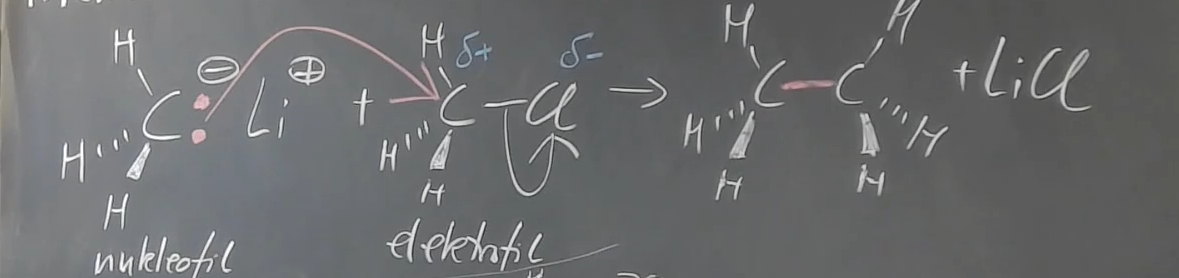 H H δ+ δ- H H
C ⊖ : Li ⊕ + C - Cl → C - C + LiCl
H H H H H
H H H H
nukleofil elektrofil